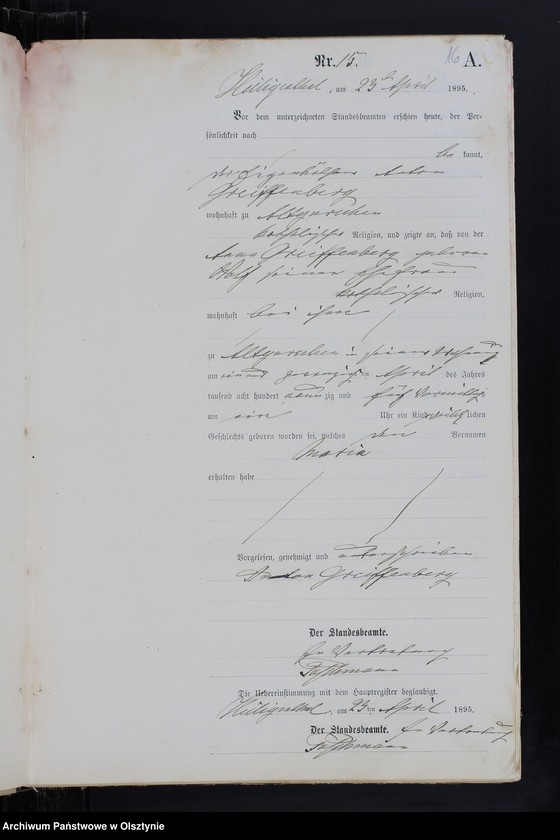 Nr. 15.
16 A.
Heiligenthal, am 23ten April 1895.
Vor dem unterzeichneten Standesbeamten erschien heute, der Per-
sönlichkeit nach
be kannt,
der Eigenkäthner Anton
Greiffenberg
wohnhaft zu Altgarschen
katholischer Religion, und zeigte an, daß von der
Anna Greiffenberg geborene
Wolf seiner Ehefrau
katholischer Religion,
wohnhaft bei ihm
zu Altgarschen in seiner Wohnung
am ein und zwanzigsten April des Jahres
tausend acht hundert neunzig und fünf Vormittags
um ein Uhr ein Kind weiblichen
Geschlechts geboren worden sei, welches den Vornamen
Maria
erhalten habe
Vorgelesen, genehmigt und unterschrieben
Anton Greiffenberg
Der Standesbeamte.
In Vertretung
Die Uebereinstimmung mit dem Hauptregister beglaubigt.
Heiligenthal, am 23ten April 1895.
Der Standesbeamte. In Vertretung
Archiwum Państwowe w Olsztynie